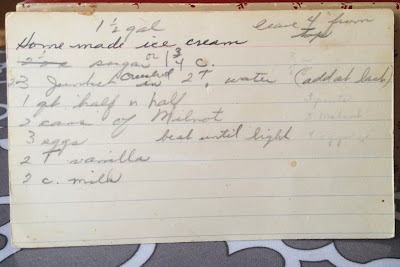 1 1/2 gal leave 4" from top
Home made ice cream
2 c. sugar or 1 3/4 c.
3 Junket crushed in 2 T. water (add at last)
1 qt half n half
2 cans of Milnot
3 eggs beat until light
2 T vanilla
2 c. milk